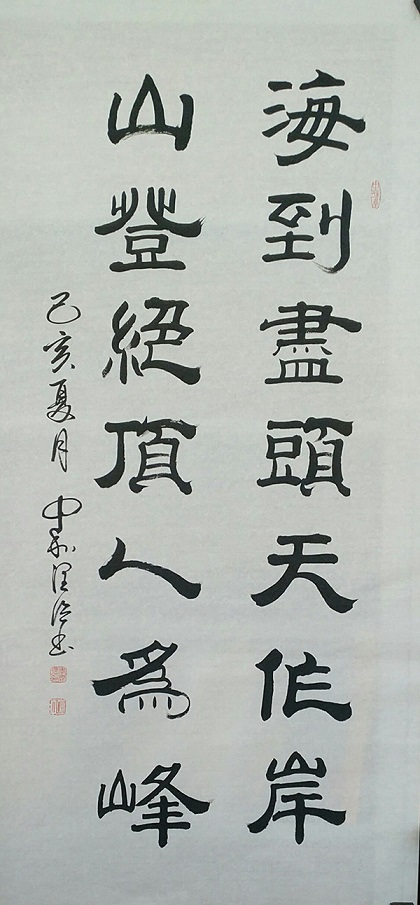 海到盡頭天作岸
山登絕頂人為峰
己亥夏月